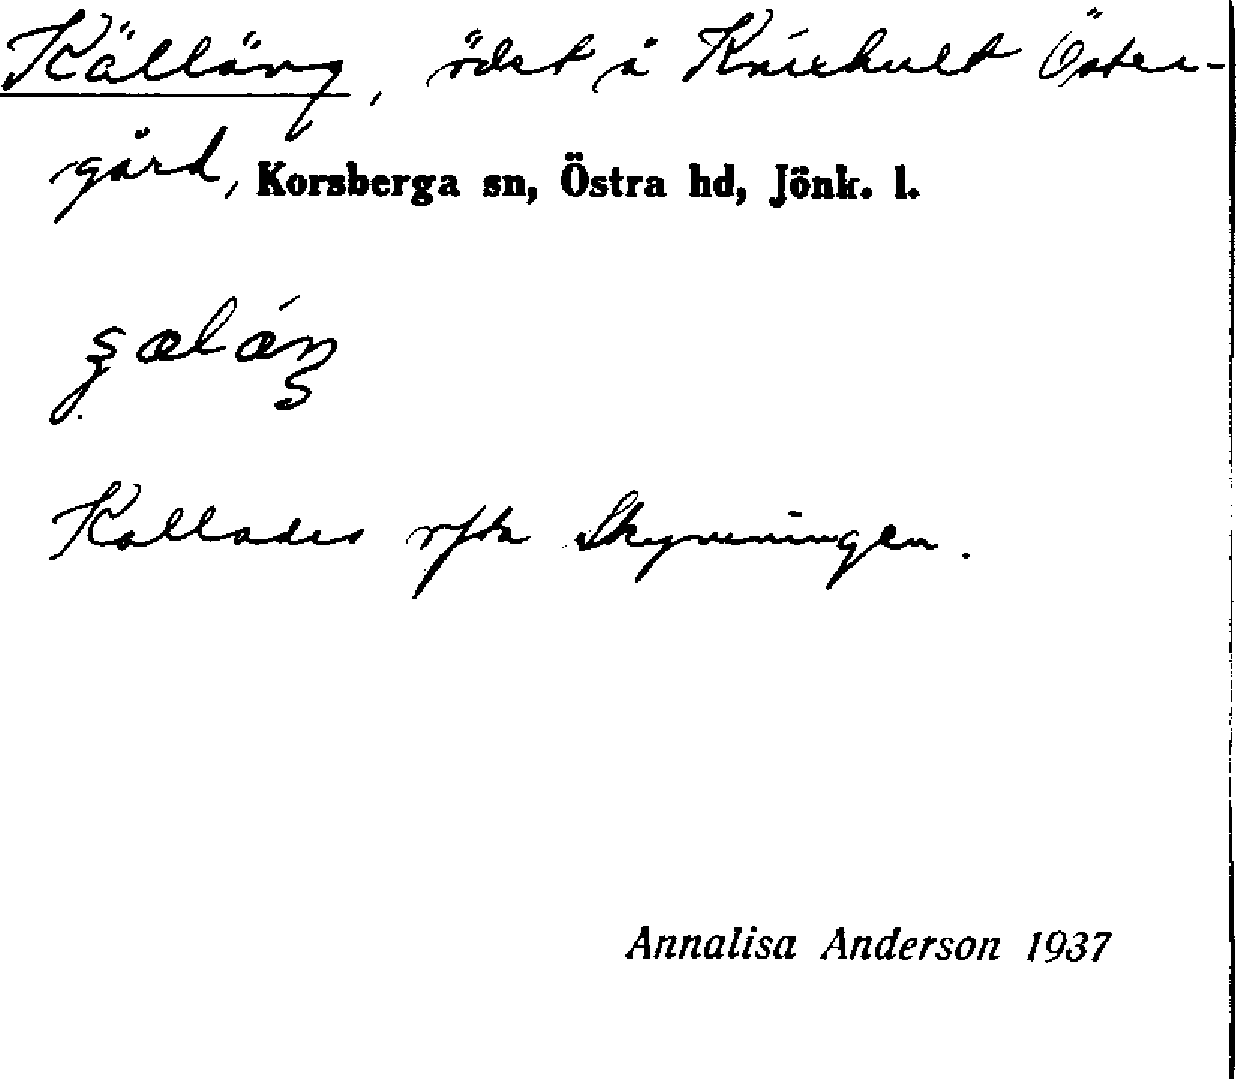 Källäng, ödst å Knixhult Öster-
gård, Korsberga sn, Östra hd, Jönk. l.
Kallades ofta Skyrningen.
Annalisa Anderson 1937